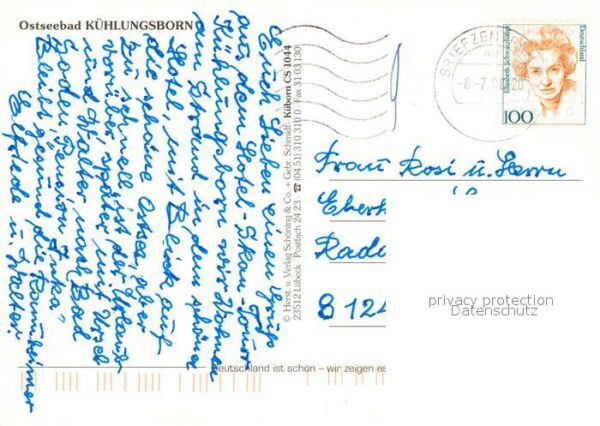 Ostseebad KÜHLUNGSBORN
Euch Lieben einen Gruß
aus dem Hotel-Skan-Tour
Kühlungsborn wir wohnen
am Strand in dem schönen
Hotel, mit Blick auf
die schöne Ostsee, aber
zu schnell ist der Urlaub
vorüber, später mit
und Walter, nach Bad
Boden, Pension
Bleibt gesund, die
u. Walter
© Herst. u. Verlag Schöning & Co. + Gebr. Schmidt · Küborn CS 1044
23512 Lübeck · Postfach 24 23 · ☎ (04 51) 310 310 · Fax 31 03 130
BRIEFZEN
-8.-7.
20
Elisabeth Schwarzhaupt
Deutschland
100
Frau Rosi u. Herrn
Eberh
Rade
8 124
privacy protection
Datenschutz
Deutschland ist schön – wir zeigen es